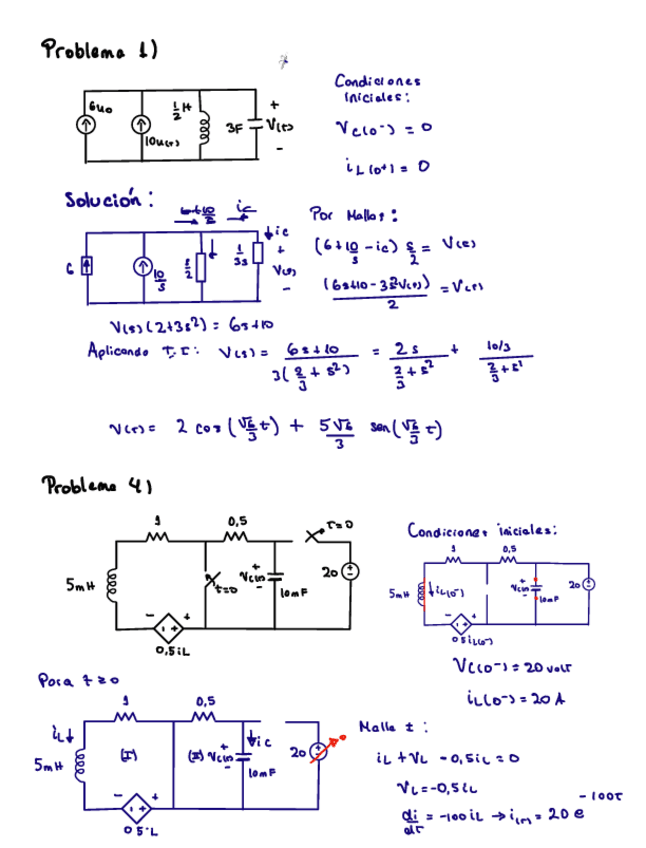 Problema 1)
Condiciones
Iniciales:
6u0
10u(t)
1/2 H
3F
+
V(t)
-
Vc(0-) = 0
iL(0+) = 0
Solución:
6+10/s
ic
Por Mallas:
6
10/s
s/2
1/3s
↓ic
+
V(s)
-
(6+10/s - ic) s/2 = V(s)
(6s+10-3s²V(s))/2 = V(s)
V(s)(2+3s²) = 6s+10
Aplicando T.I: V(s) = 6s+10 / 3(2/3 + s²) = 2s / (2/3 + s²) + 10/3 / (2/3 + s²)
V(t) = 2 cos(√6/3 t) + 5√6/3 sen(√6/3 t)
Problema 4)
1
0,5
t=0
5mH
t=0
+
Vc(t)
-
10mF
20
+
-
- +
0,5iL
Condiciones iniciales:
1
0,5
5mH
↓iL(0-)
+
Vc(t)
-
10mF
20
+
-
- +
0 5iL(0-)
Vc(0-) = 20 volt
iL(0-) = 20 A
Para t≥0
1
0,5
iL↓
5mH
(I)
(II)
+
Vc(t)
-
↓ic
10mF
20
+
-
0
- +
0 5iL
Malla I:
iL + VL - 0,5iL = 0
VL = -0,5iL
di/dt = -100iL → i(t) = 20 e^-100t